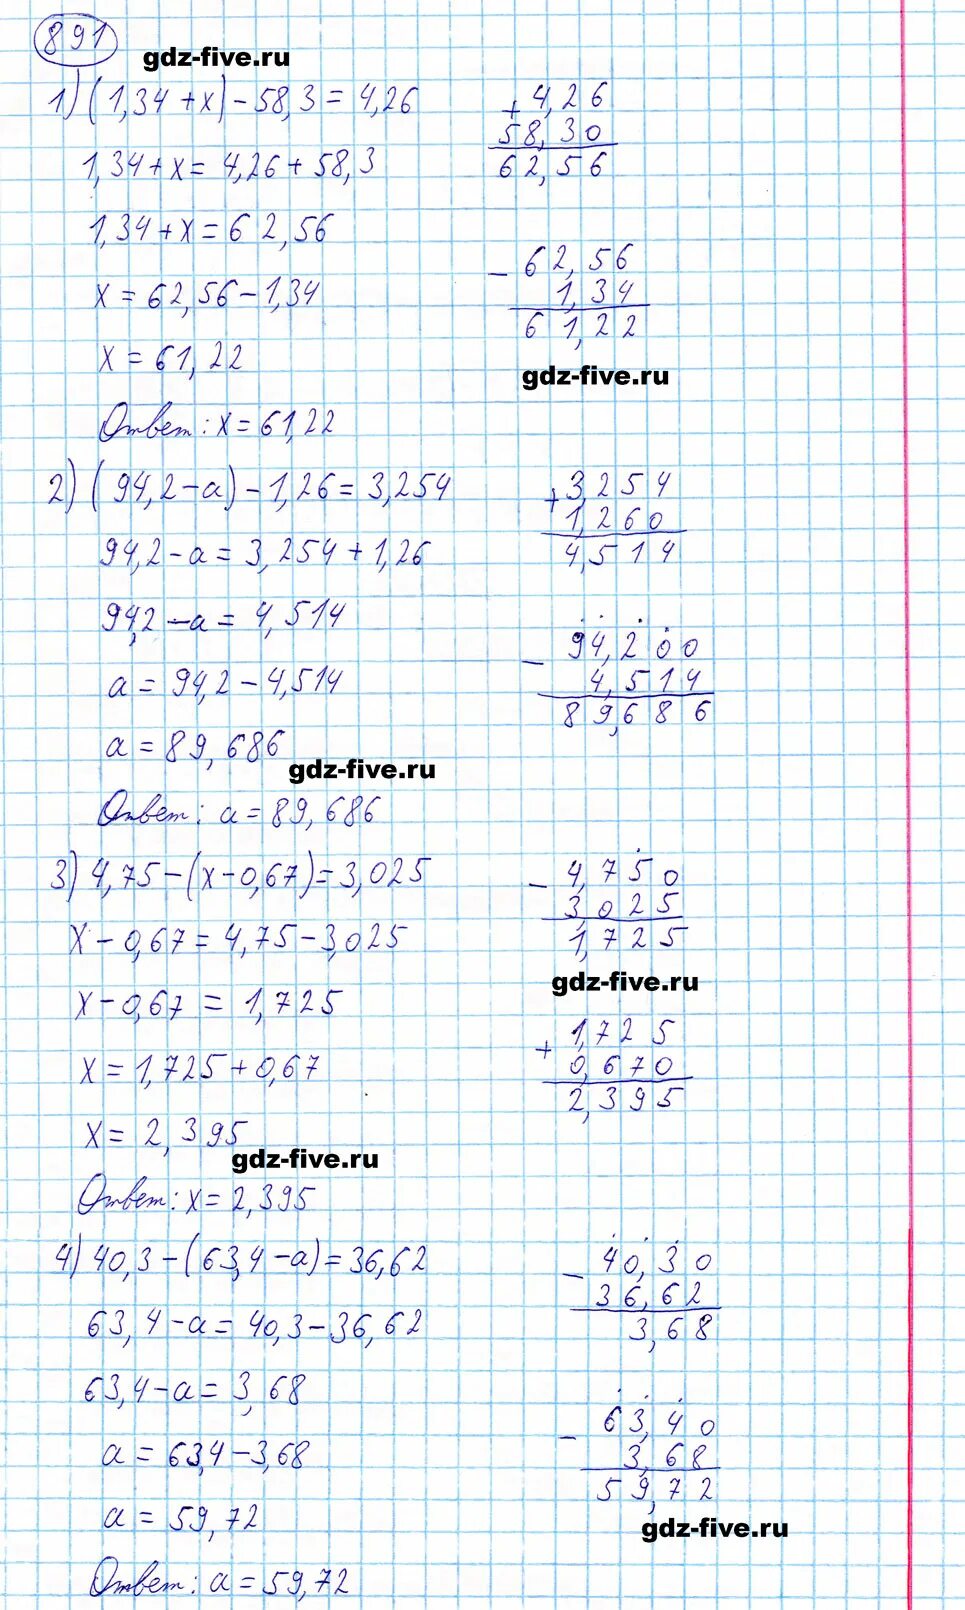 891
gdz-five.ru
1) (1,34 + x) - 58,3 = 4,26
1,34 + x = 4,26 + 58,3
1,34 + x = 62,56
x = 62,56 - 1,34
x = 61,22
Ответ: x = 61,22
+ 4,26
58,30
62,56
- 62,56
1,34
61,22
gdz-five.ru
2) (94,2 - a) - 1,26 = 3,254
94,2 - a = 3,254 + 1,26
94,2 - a = 4,514
a = 94,2 - 4,514
a = 89,686
gdz-five.ru
Ответ: a = 89,686
+ 3,254
1,260
4,514
- 94,200
4,514
89,686
3) 4,75 - (x - 0,67) = 3,025
x - 0,67 = 4,75 - 3,025
x - 0,67 = 1,725
x = 1,725 + 0,67
x = 2,395
gdz-five.ru
Ответ: x = 2,395
- 4,750
3,025
1,725
gdz-five.ru
+ 1,725
0,670
2,395
4) 40,3 - (63,4 - a) = 36,62
63,4 - a = 40,3 - 36,62
63,4 - a = 3,68
a = 63,4 - 3,68
a = 59,72
Ответ: a = 59,72
- 40,30
36,62
3,68
- 63,40
3,68
59,72
gdz-five.ru